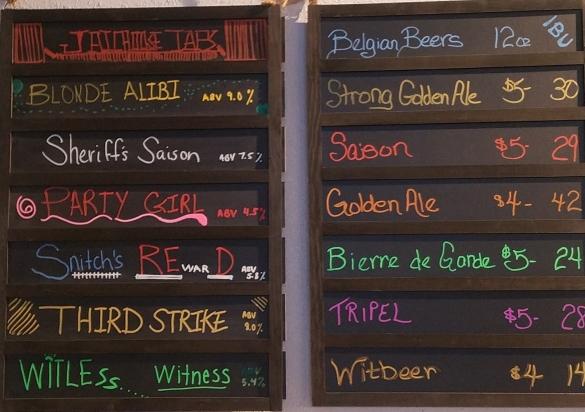 JAILHOUSE TAPS
BLONDE ALIBI ABV 9.0%
Sheriff's Saison ABV 7.5%
PARTY GIRL ABV 4.5%
Snitch's REWARD ABV 5.8%
THIRD STRIKE ABV 9.0%
WITLESS Witness ABV 5.4%
Belgian Beers 12oz IBU
Strong Golden Ale $5- 30
Saison $5- 29
Golden Ale $4- 42
Bierre de Garde $5- 24
TRIPEL $5- 28
Witbeer $4 14